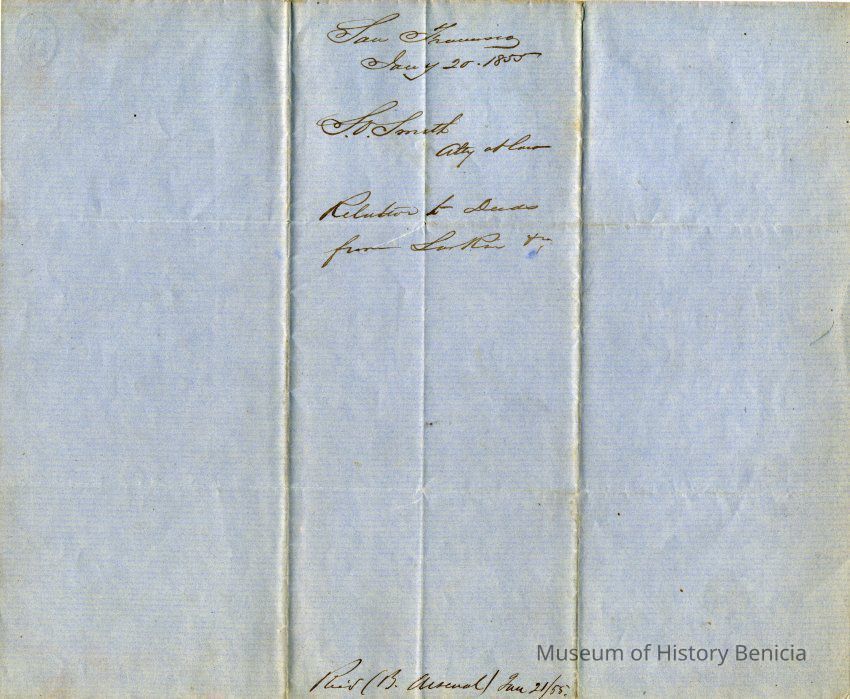 San Francisco
Jany 20. 1855
S.O. Smith
Atty at Law
Relative to Deeds
from Larkin &c
Recd (B. Arsenal) Jan 21/55.
Museum of History Benicia